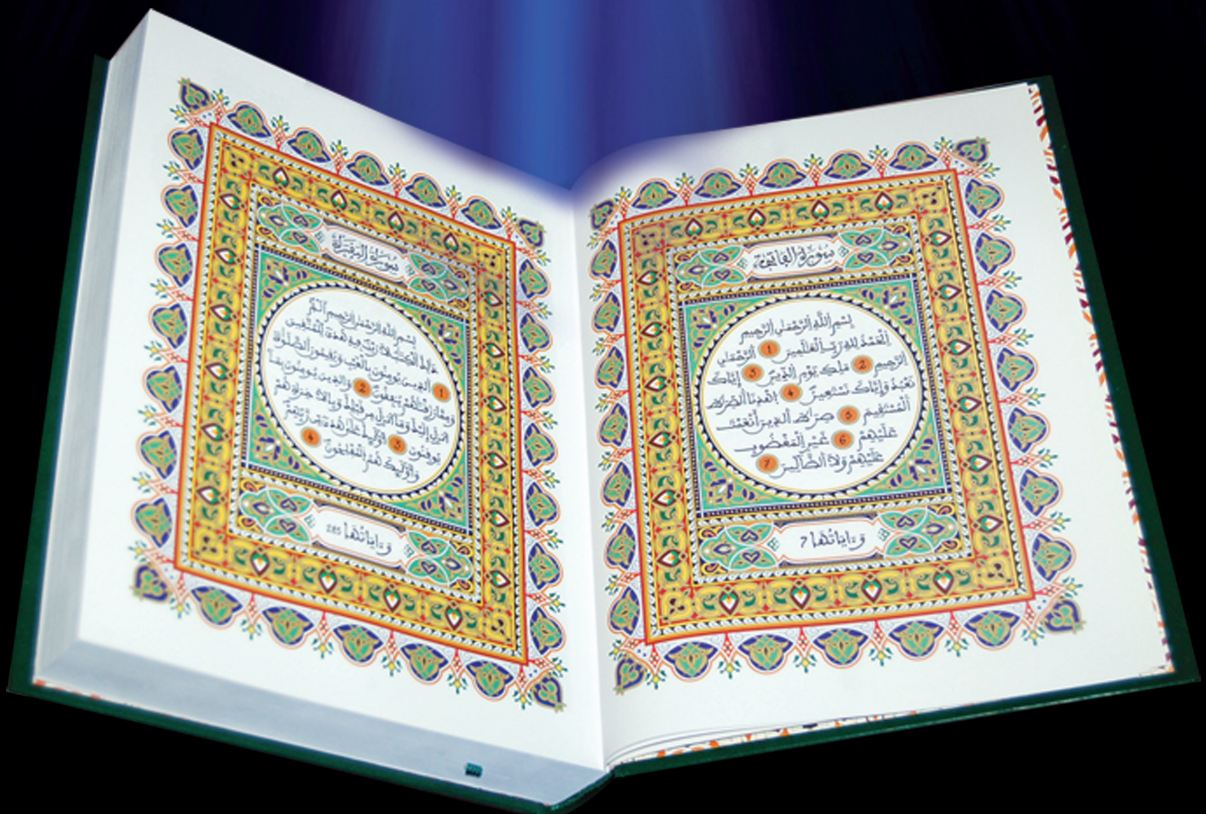 سورة الفاتحة
بسم الله الرحمن الرحيم
الحمد لله رب العلمين 1 الرحمن
الرحيم 2 ملك يوم الدين 3 إياك
نعبد وإياك نستعين 4 اهدنا الصراط
المستقيم 5 صراط الذين أنعمت
عليهم 6 غير المغضوب
عليهم ولا الضالين 7
وءاياتها 7
سورة البقرة
بسم الله الرحمن الرحيم ألم
ذلك الكتب لا ريب فيه هدى للمتقين
1 الذين يومنون بالغيب ويقيمون الصلوة
ومما رزقنهم ينفقون 2 والذين يومنون بما
أنزل إليك وما أنزل من قبلك وبالاخرة هم
يوقنون 3 أولئك على هدى من ربهم 4
وأولئك هم المفلحون
وءاياتها 285